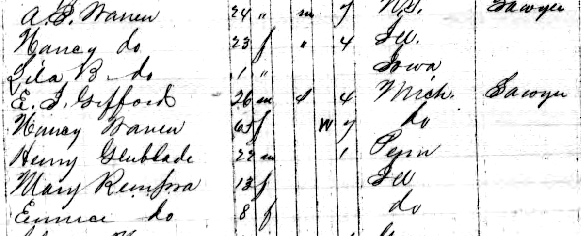 A. S. Warren 24 " m 7 Sawyer
Nancy do 23 f " 4 Ill.
Lila B. do 1 " Iowa
E. J. Gifford 26 m s 4 Mich. Sawyer
Nancy Warren 65 f W 7 do
Henry 22 m 1 Penn
Mary 13 f Ill
Eunice do 8 f do